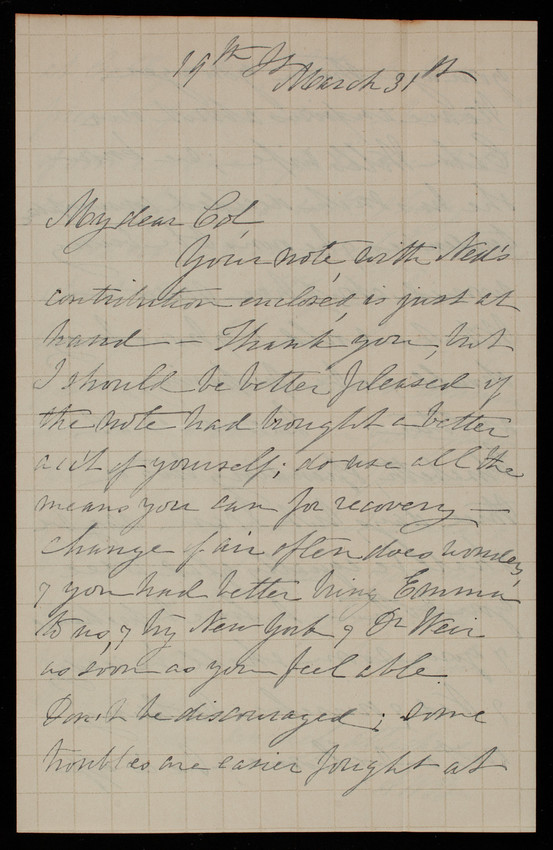 19th St
March 31st
My dear Col,
Your note, with Ned's
contribution enclosed, is just at
hand — Thank you, but
I should be better pleased if
the note had brought a better
acct of yourself; do use all the
means you can for recovery —
change of air often does wonders,
& you had better bring Emma
to us, & try New York & Dr Weir
as soon as you feel able.
Don't be discouraged; some
troubles are easier fought at